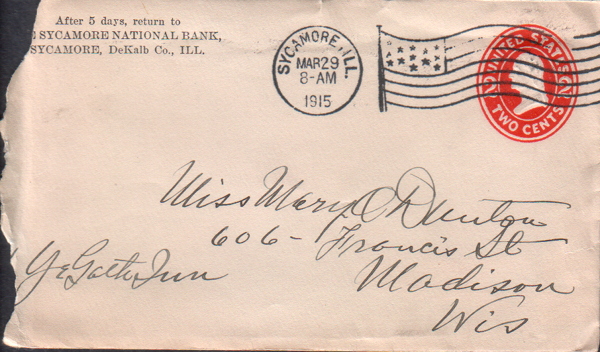 After 5 days, return to
SYCAMORE NATIONAL BANK,
SYCAMORE, DeKalb Co., ILL.
SYCAMORE, ILL.
MAR 29
8-AM
1915
UNITED STATES
2 2
TWO CENTS
Miss Mary O Dunton
606- Francis St
Ye Gath Inn
Madison
Wis